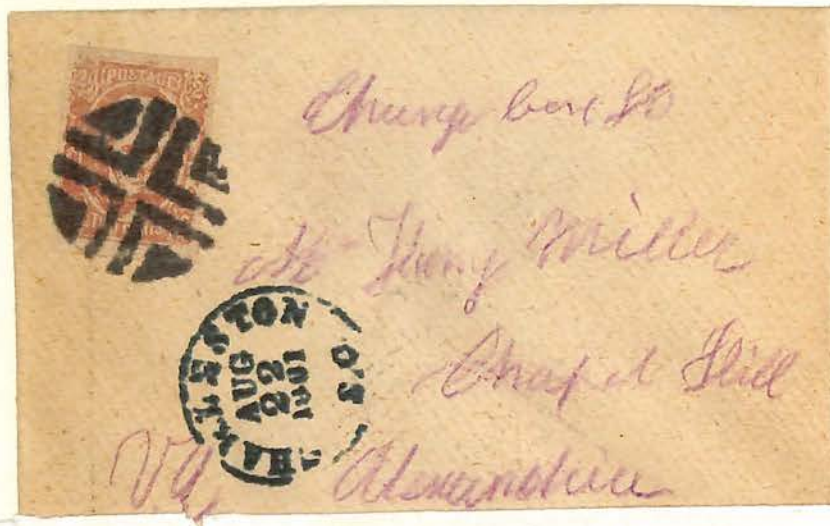 POSTAGE
Charge box 80
Mr Henry Miller
Chapel Hill
Va Alexandria
CHARLESTON S.C.
AUG
22
1861